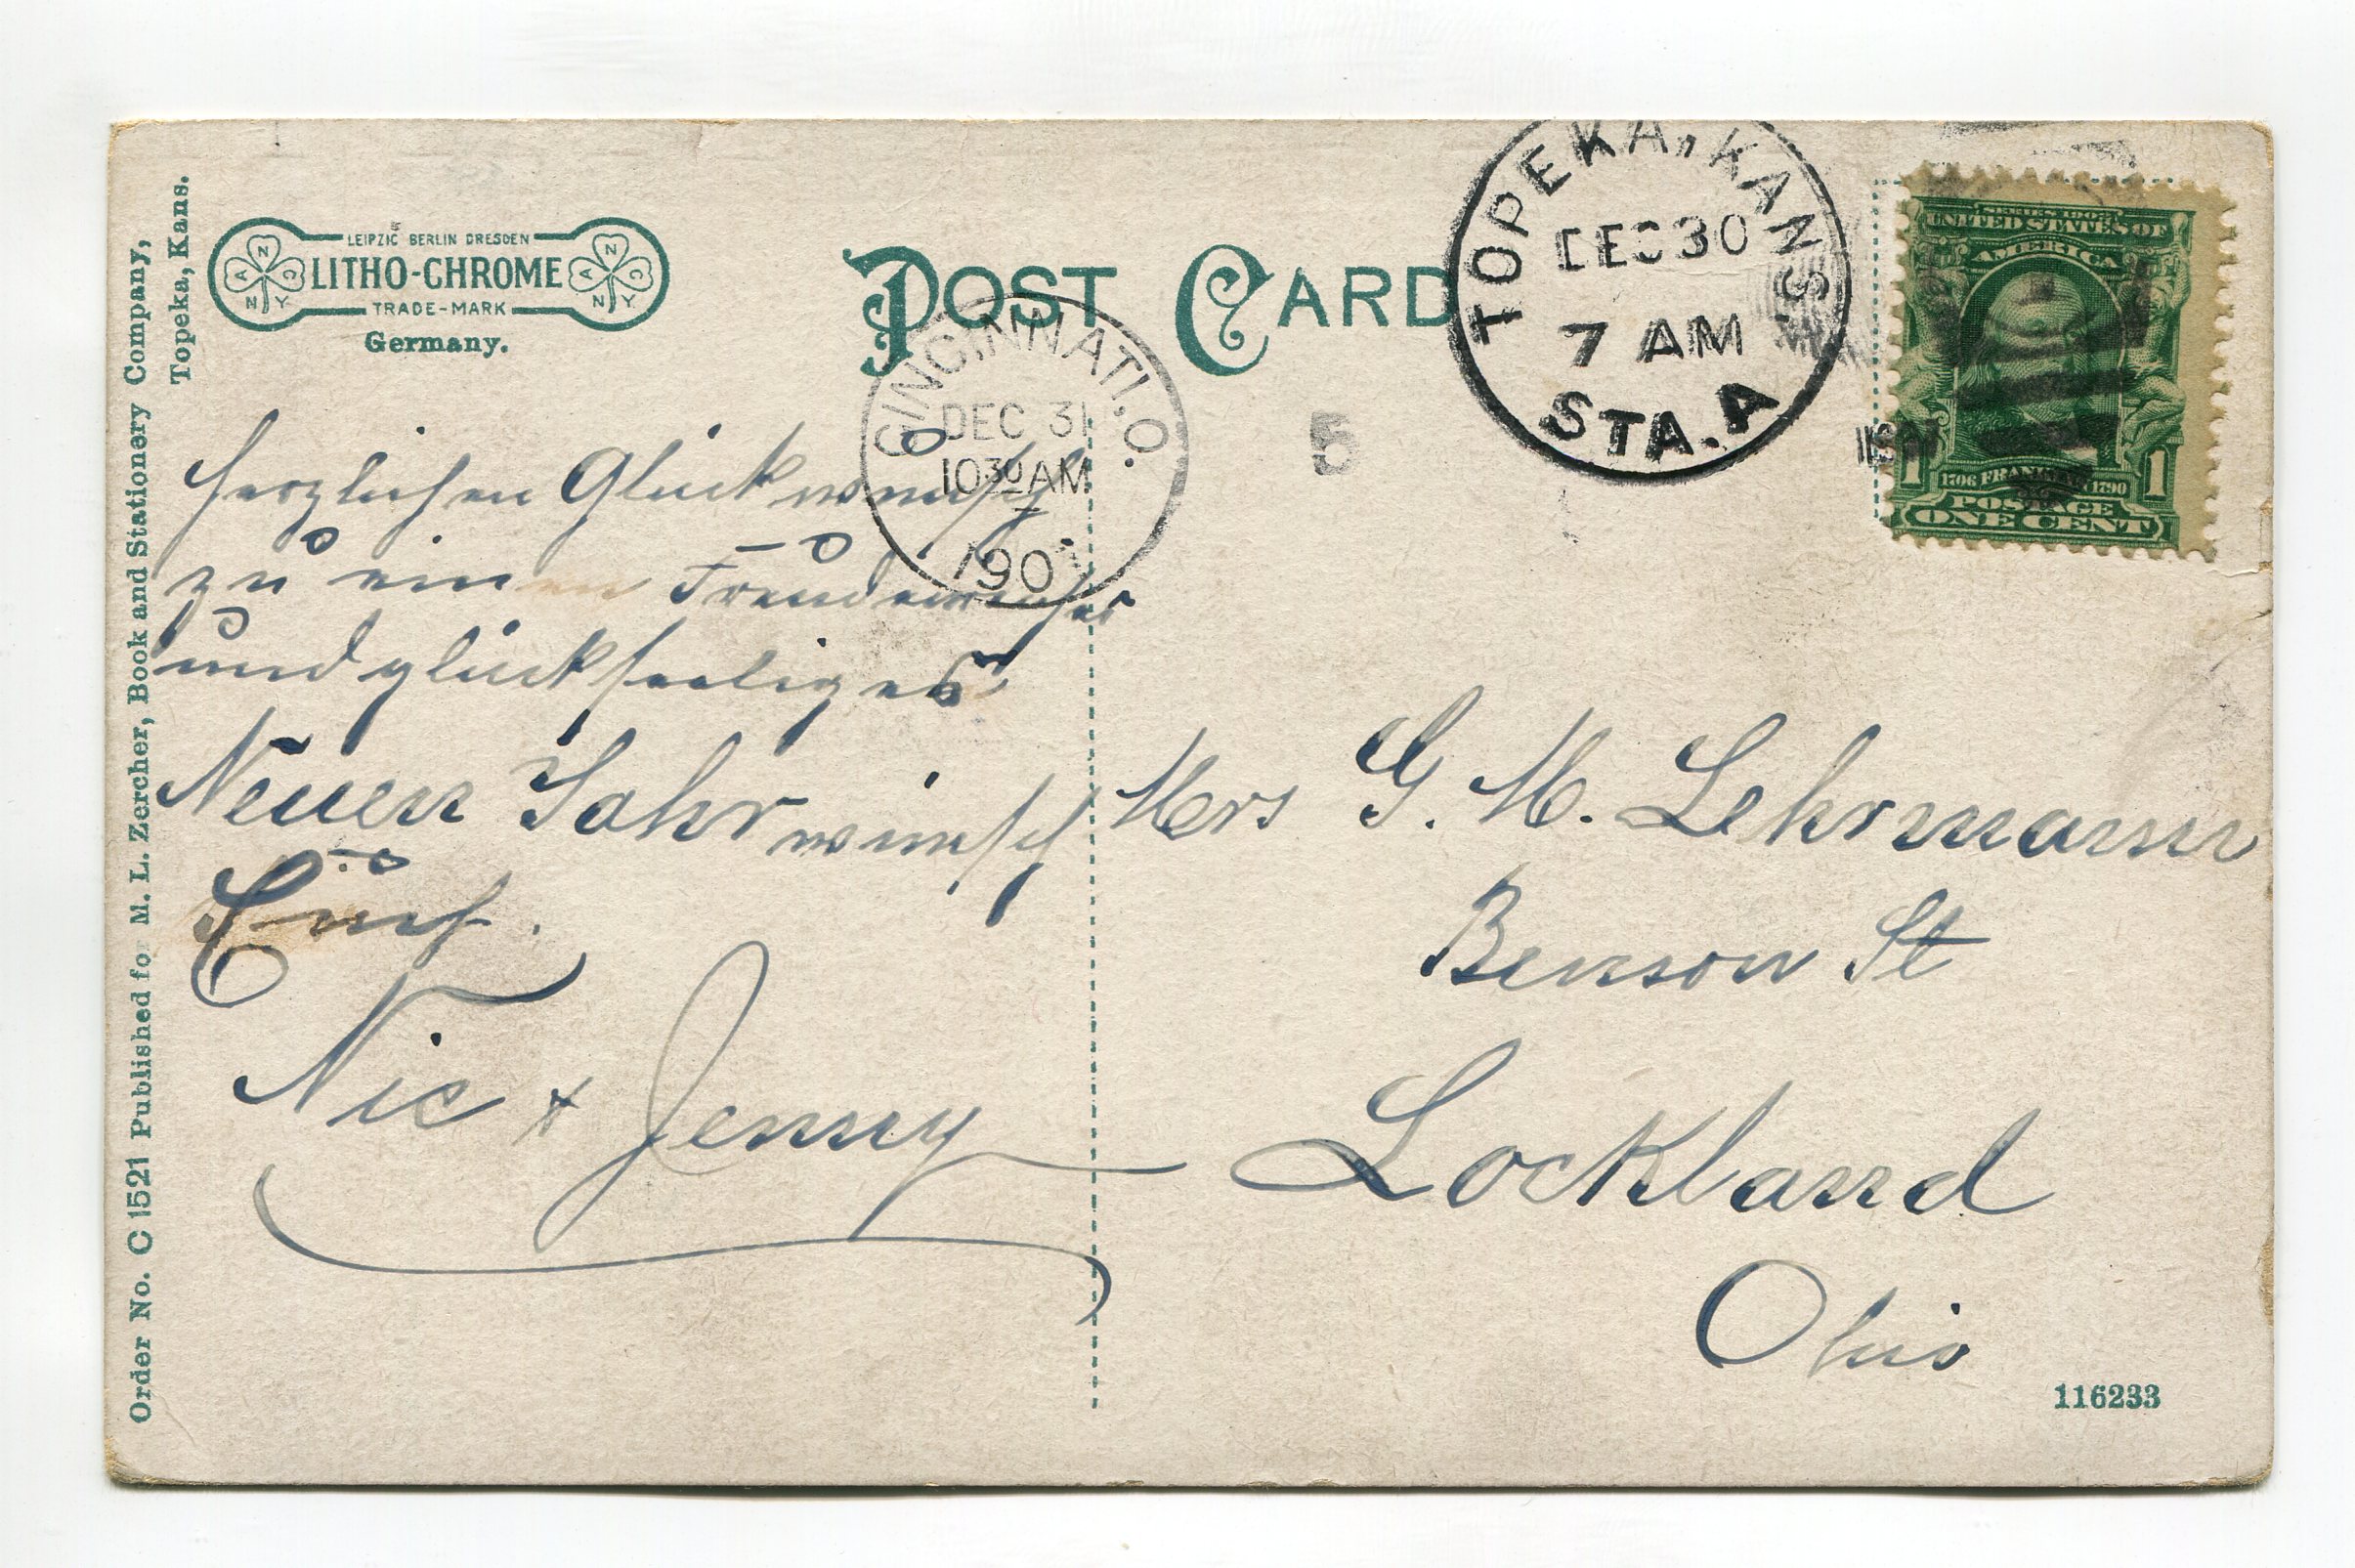 Order No. C 1521 Published for M. L. Zercher, Book and Stationery Company,
Topeka, Kans.
LEIPZIG BERLIN DRESDEN
LITHO-CHROME
TRADE-MARK
Germany.
A N C N Y
A N C N Y
POST CARD
CINCINNATI, O.
DEC 31
10 30 AM
190
5
TOPEKA, KANS.
DEC 30
7 AM
STA. A
SERIES 1902
UNITED STATES OF
AMERICA
1706 FRANKLIN 1790
1 1
POSTAGE
ONE CENT
herzlichen Glückwunsch
zu einen
und glückseeliges
Neuen Jahr wünsch
Euch.
Nic + Jenny
Mrs G. M. Lehrmann
Benson St
Lockland
Ohio
116233